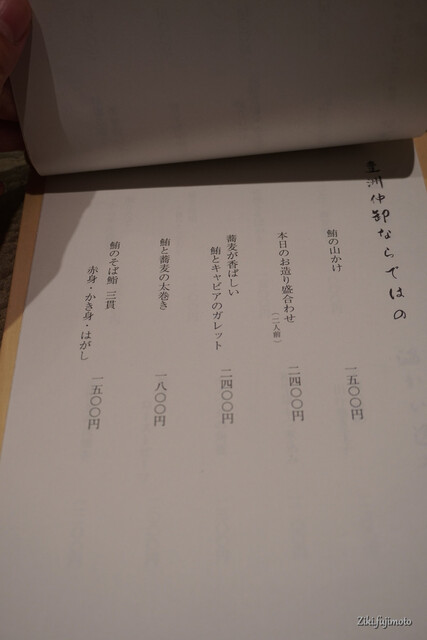 豊洲仲卸ならではの
鮪の山かけ
一五〇〇円
本日のお造り盛合わせ(二人前)
二四〇〇円
蕎麦が香ばしい
鮪とキャビアのガレット
二四〇〇円
鮪と蕎麦の太巻き
一八〇〇円
鮪のそば鮨 三貫
赤身・かき身・はがし
一五〇〇円
Ziki.fujimoto